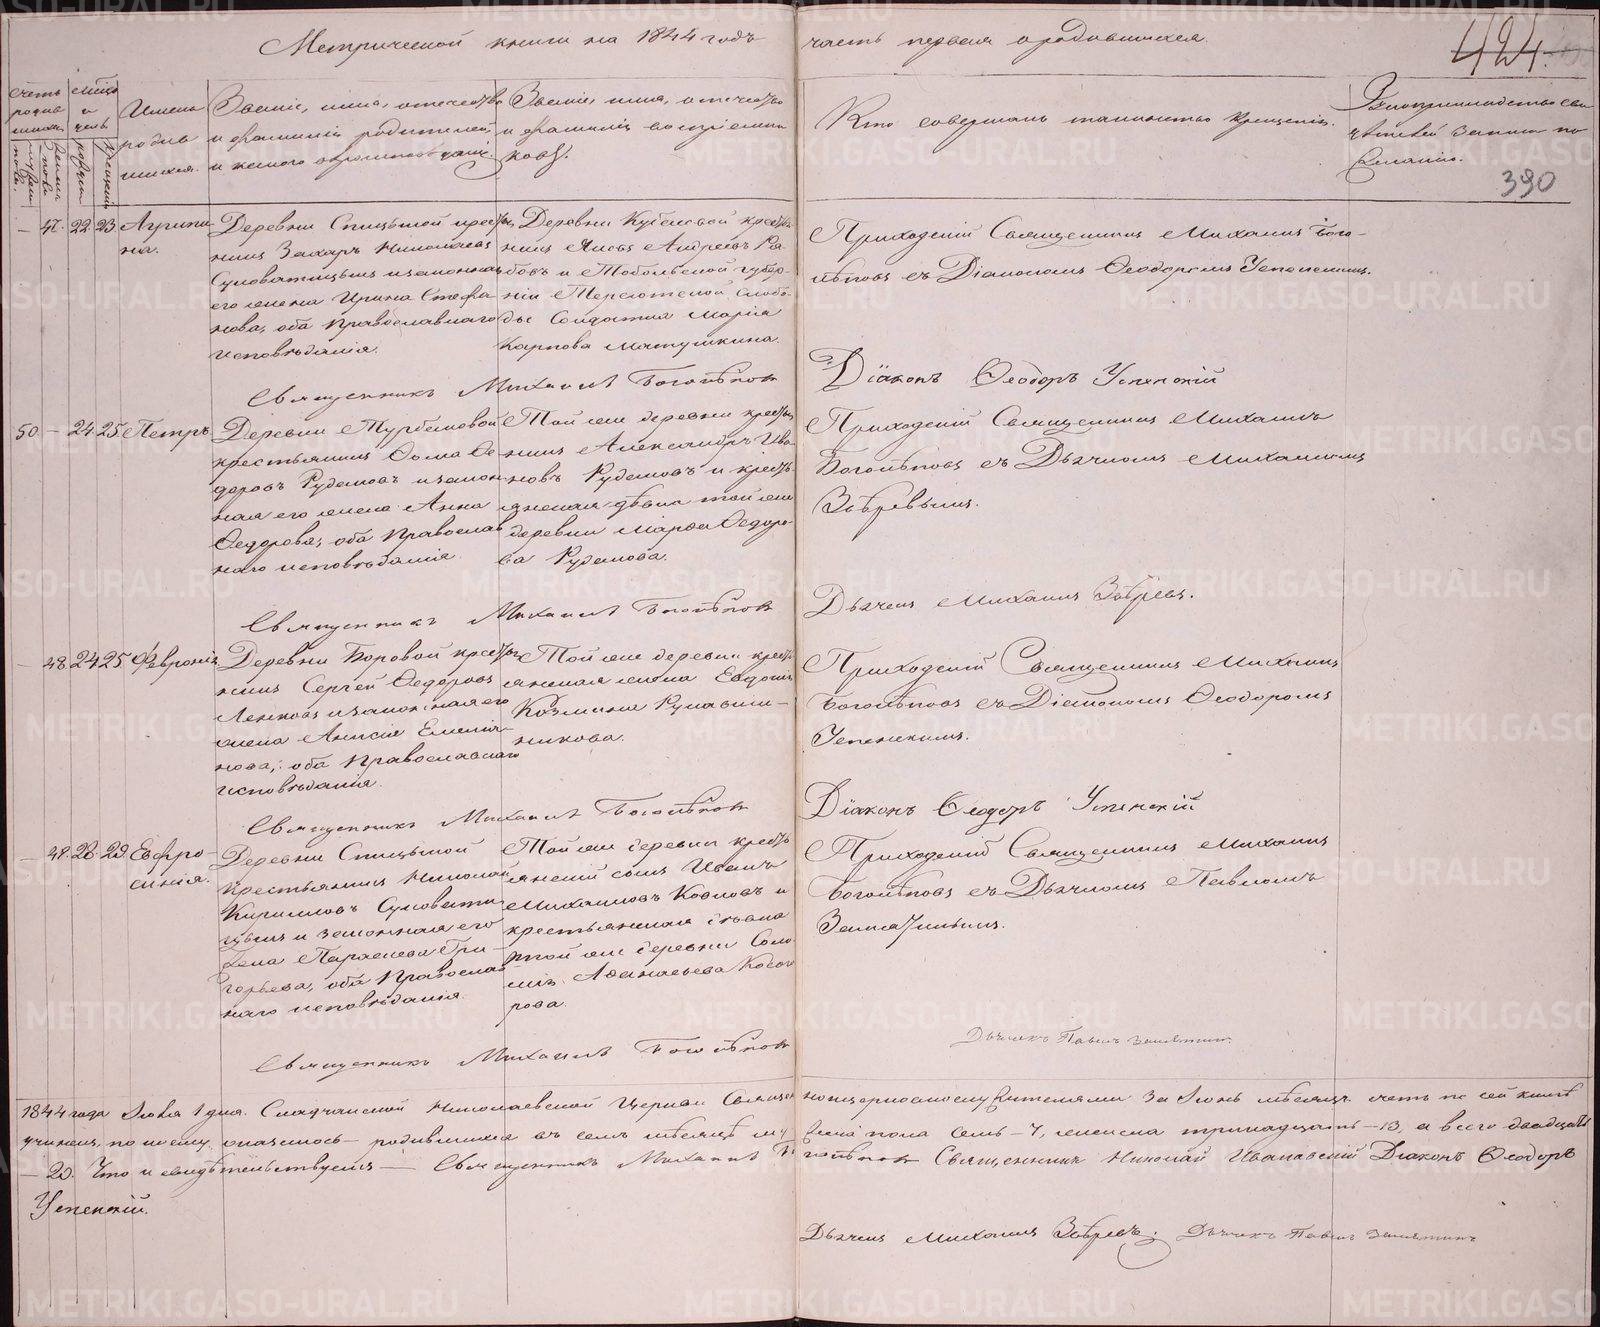 Метрической книги на 1844 годъ
часть первая о родившихся.
424.
390
Счетъ родившихся
Мѣсяцъ и число
мужеска пола.
женска пола
рожденія
крещенія
Имена
родив
шихся.
Званіе, имя, отечество
и фамилія родителей,
и какого вѣроисповѣданія.
Званіе, имя, отечество
и фамилія воспріемни
ковъ.
Кто совершалъ таинство крещенія.
Рукоприкладство сви
дѣтелей записи по
желанію.
— 47. 22. 23. Агрипи
на.
Деревни Спицыной кресть
нинъ Захаръ Николаевъ
Суковатицынъ и законная
его жена Ирина Стефа
нова, оба Православнаго
исповѣданія.
Деревни Кубаевой кресть
нинъ Яковъ Андреевъ Ря
бовъ и Тобольской губер
ніи Терсютской слобо
ды Солдатка Марія
Карпова Матушкина.
Приходскій Священникъ Михаилъ Бого
лѣповъ съ Діакономъ Ѳеодоромъ Успенскимъ.
Священникъ Михаилъ Боголѣпов
Діаконъ Ѳеодоръ Успенскій
50. — 24. 25. Петръ.
Деревни Турбановой
крестьянинъ Ѳома Ѳе
доровъ Рудаковъ и закон
ная его жена Анна
Ѳедорова, оба Православ
наго исповѣданія.
Той же деревни кресть
нинъ Александръ Ива
новъ Рудаковъ и кресть
янская дѣвка той же
деревни Марѳа Ѳедоро
ва Рудакова.
Приходскій Священникъ Михаилъ
Боголѣповъ съ Дьячкомъ Михаиломъ
Звѣревымъ.
Священникъ Михаилъ Боголѣпов
Дьячекъ Михаилъ Звѣревъ.
— 48. 24. 25. Февронія
Деревни Боровой кресть
нинъ Сергей Ѳедоровъ
Ленковъ и законная его
жена Анисія Емелья
нова, оба Православнаго
исповѣданія.
Той же деревни кресть
янская жена Евдокія
Козмина Рукавиш-
никова.
Приходскій Священникъ Михаилъ
Боголѣповъ съ Діакономъ Ѳеодоромъ
Успенскимъ.
Священникъ Михаилъ Боголѣпов
Діаконъ Ѳеодоръ Успенскій
— 49. 28. 29. Евфро-
синія.
Деревни Спицыной
крестьянинъ Николай
Кириловъ Суковати
цынъ и законная его
жена Параскева Гри-
горьева, оба Православ
наго исповѣданія.
Той же деревни кресть
янскій сынъ Иванъ
Михаиловъ Козловъ и
крестьянская дѣвка
той же деревни Соло
мія Аѳанасьева Косого
рова.
Приходскій Священникъ Михаилъ
Боголѣповъ съ Дьячкомъ Павломъ
Замятинымъ.
Священникъ Михаилъ Боголѣпов
Дьячекъ Павелъ Замятинъ
1844 года Іюля 1 дня. Сладчанской Николаевской Церкви Священноцерковнослужителями за Іюнь мѣсяцъ счетъ по сей книгѣ
учиненъ, по коему оказалось — родившихся въ семъ мѣсяцѣ мужеска пола семь — 7, женска тринадцать — 13, а всего двадцать
— 20. Что и свидѣтельствуемъ — Священникъ Михаилъ Боголѣпов Священникъ Николай Діаконъ Ѳеодоръ
Успенскій.
Дьячекъ Михаилъ Звѣревъ. Дьячекъ Павелъ Замятинъ
METRIKI.GASO-URAL.RU